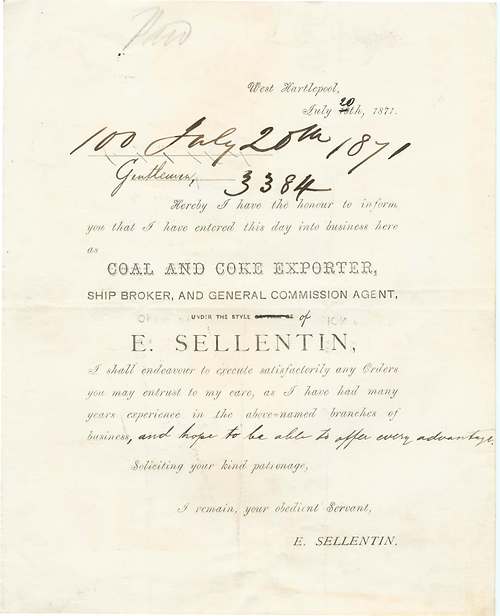 West Hartlepool,
July 20th, 1871.
100 July 20th 1871
Gentlemen, 3384
Hereby I have the honour to inform
you that I have entered this day into business here
as
COAL AND COKE EXPORTER,
SHIP BROKER, AND GENERAL COMMISSION AGENT,
UNDER THE STYLE of
E. SELLENTIN,
I shall endeavour to execute satisfactorily any Orders
you may entrust to my care, as I have had many
years experience in the above-named branches of
business, and hope to be able to offer every advantage.
Soliciting your kind patronage,
I remain, your obedient Servant,
E. SELLENTIN.